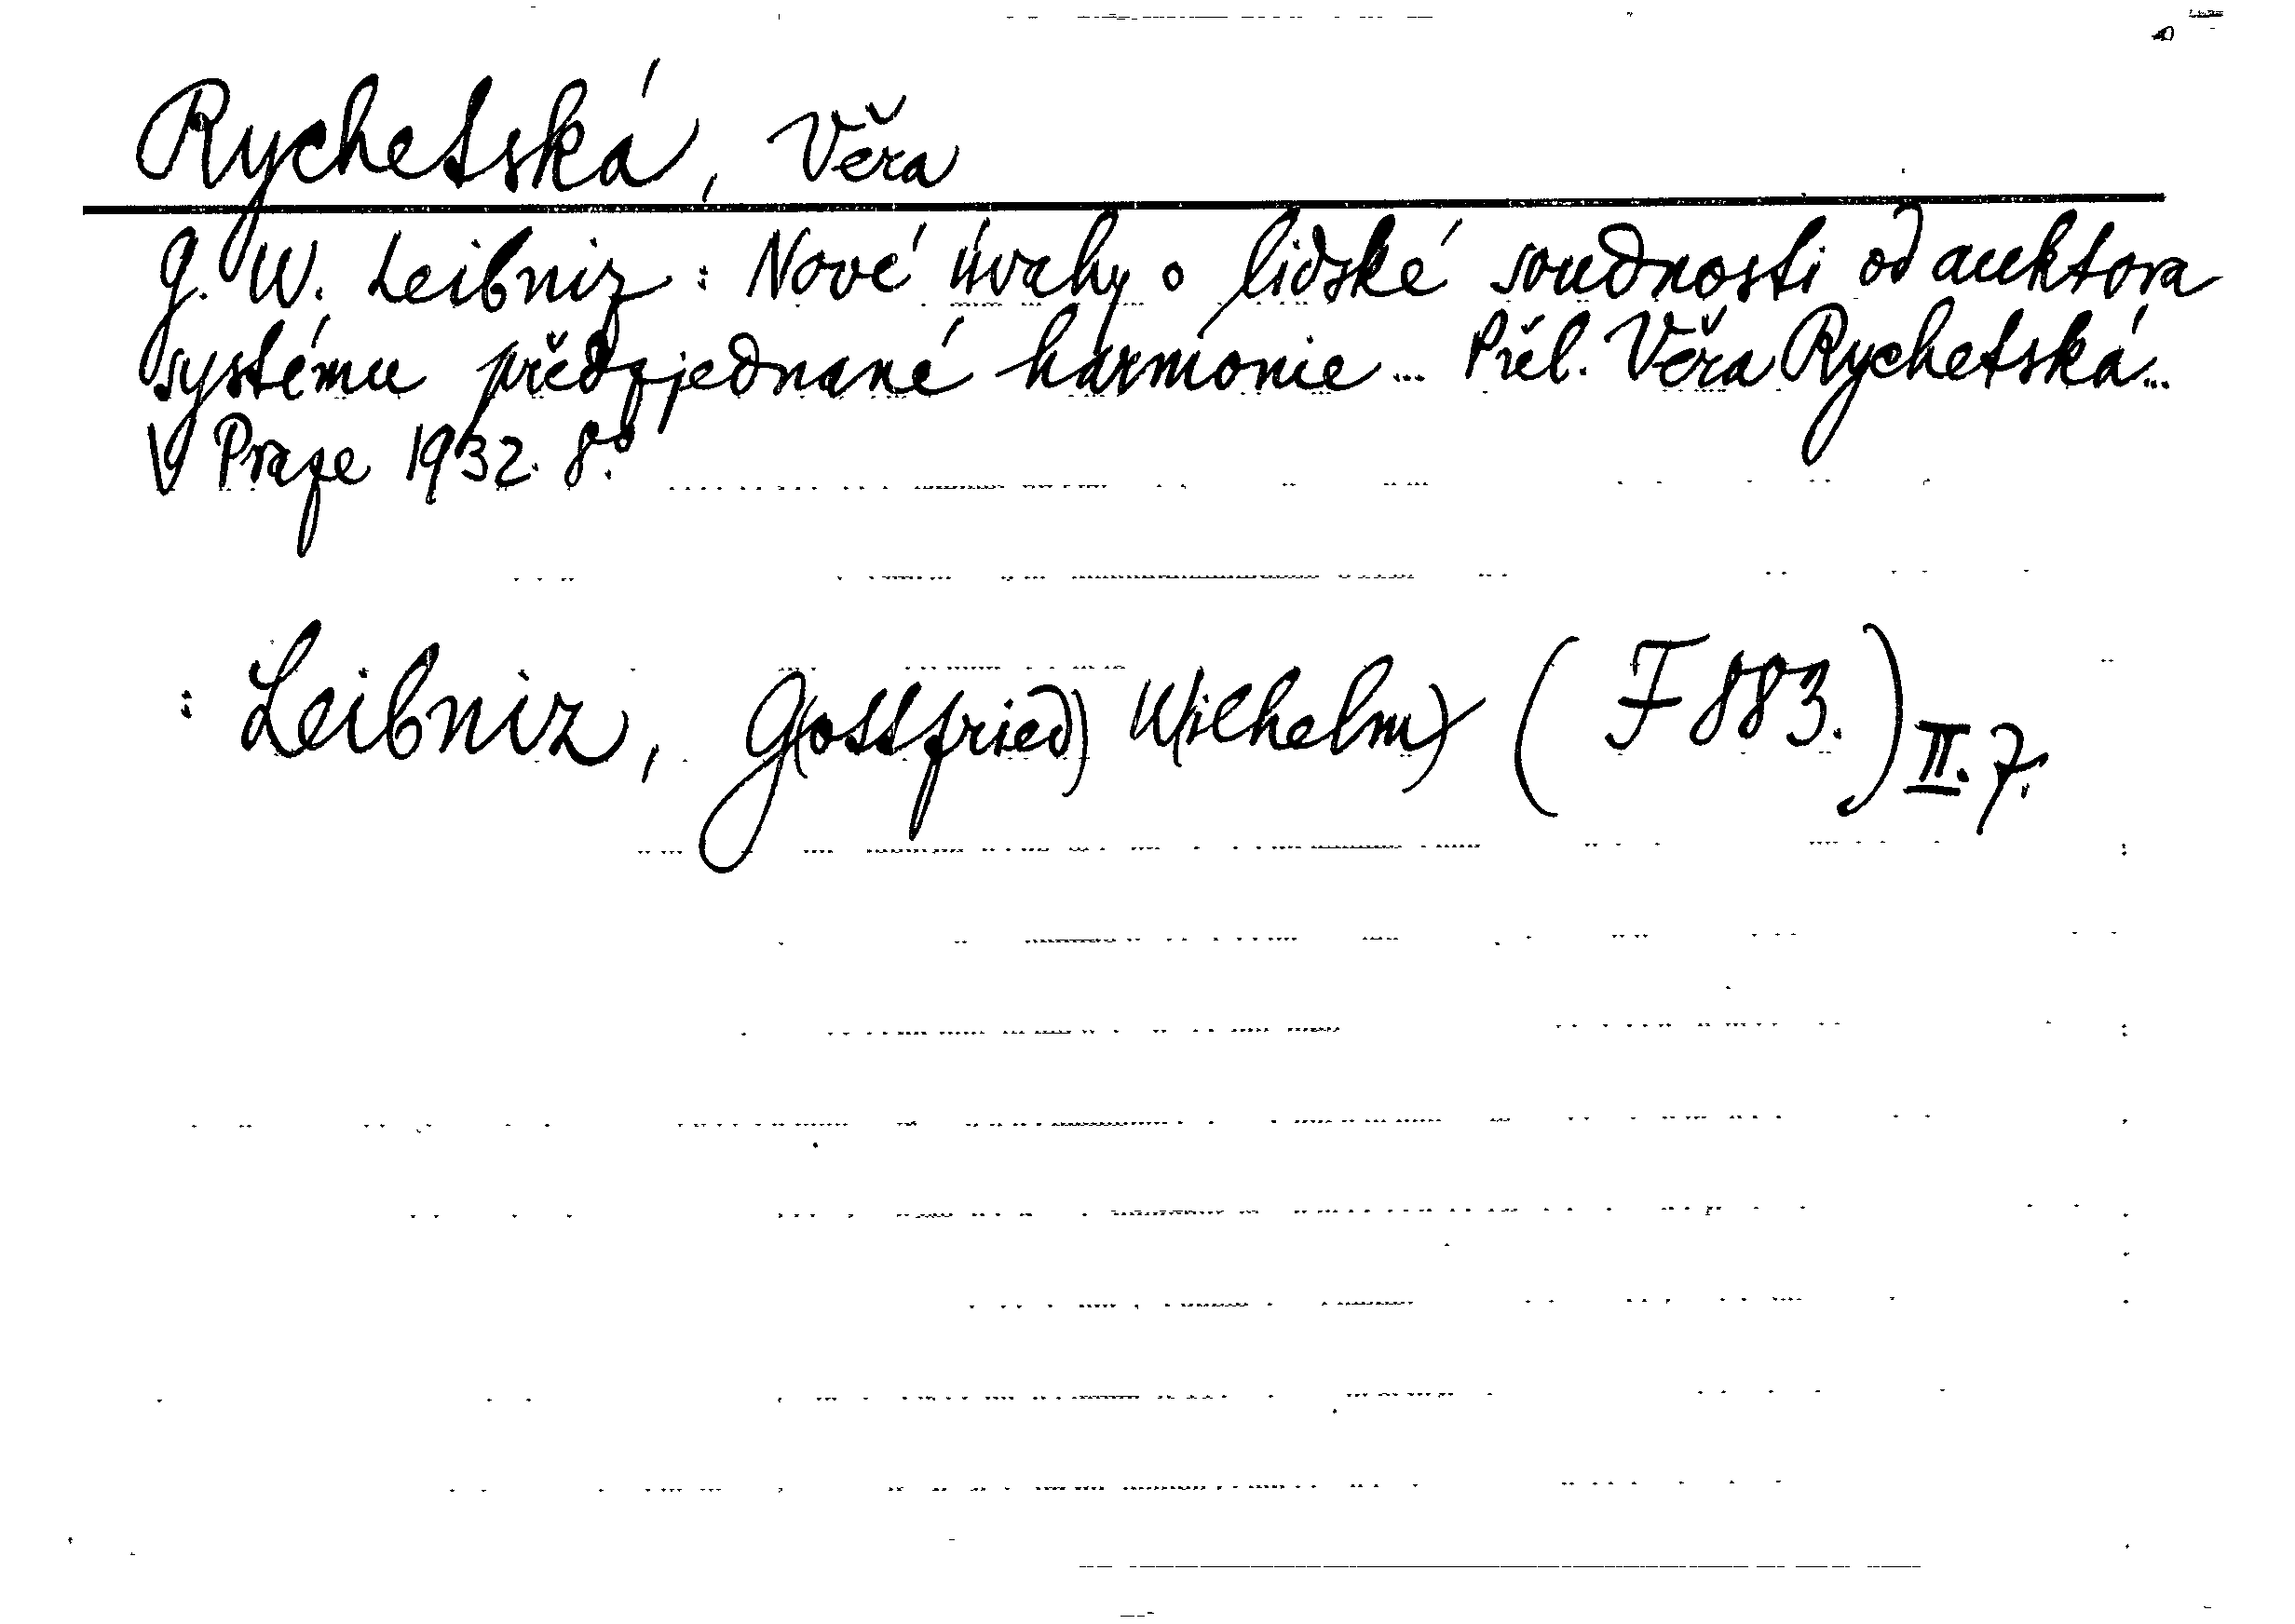 Rychetská, Věra
G. W. Leibniz: Nové úvahy o lidské soudnosti od auktora
systému předzjednané harmonie... Přel. Věra Rychetská...
V Praze 1932. 8.°
: Leibniz, G(ottfried) W(ilhelm) (F 883.) II. 7.